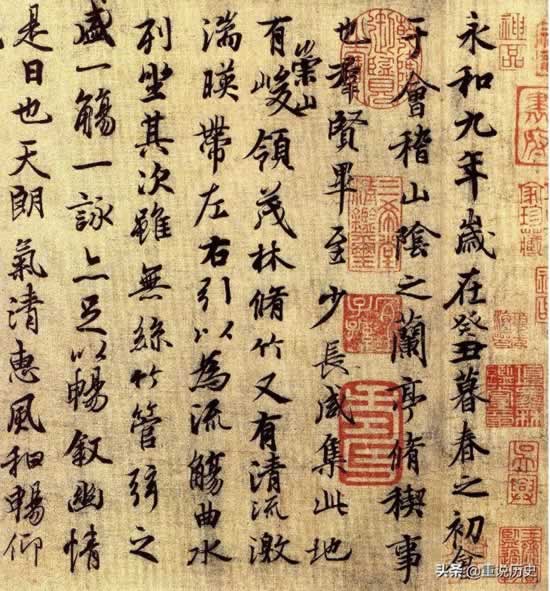 永和九年歲在癸丑暮春之初會
于會稽山陰之蘭亭脩稧事
也羣賢畢至少長咸集此地
有崇山峻領茂林脩竹又有清流激
湍暎帶左右引以為流觴曲水
列坐其次雖無絲竹管弦之
盛一觴一詠亦足以暢敘幽情
是日也天朗氣清惠風和暢仰
神品
三希堂
头条 @重说历史